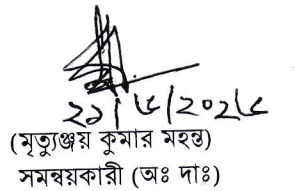 ২১/৫/২০২৫
(মৃত্যুঞ্জয় কুমার মহন্ত)
সমন্বয়কারী (অঃ দাঃ)